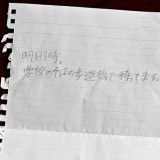 明日3時。
学校のそばの歩道橋で待ってます